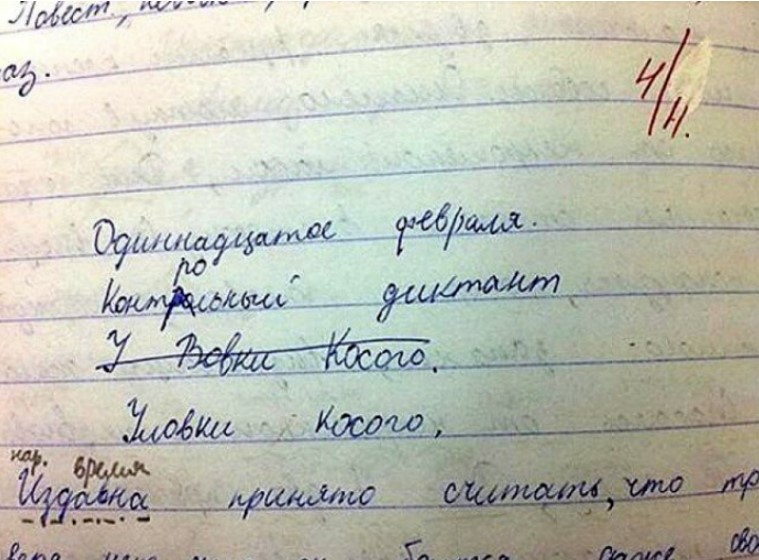 Повест.,
аз.
4/4.
Одиннадцатое февраля.
Контрольный диктант
У Вовки Косого.
Уловки косого.
нар. времия
Издавна принято считать, что тр